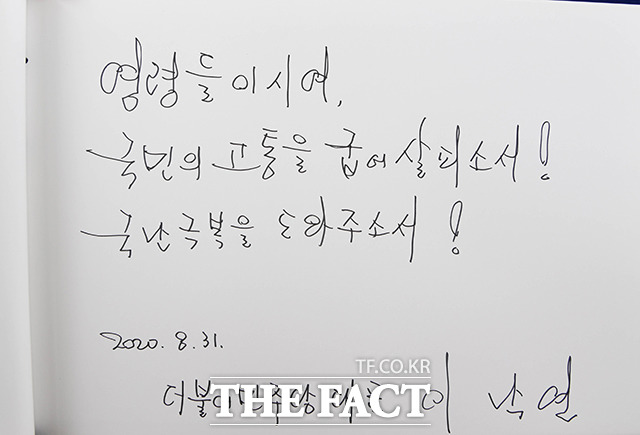 영령들이시여,
국민의 고통을 굽어살피소서!
국난극복을 도와주소서!
2020. 8. 31.
더불어민주당 대표 이낙연
TF.CO.KR
THE FACT